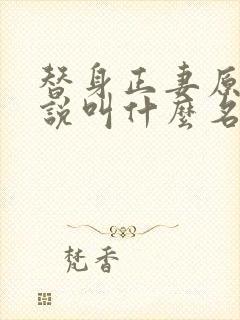 替身正妻原
說叫什麼名
梵香